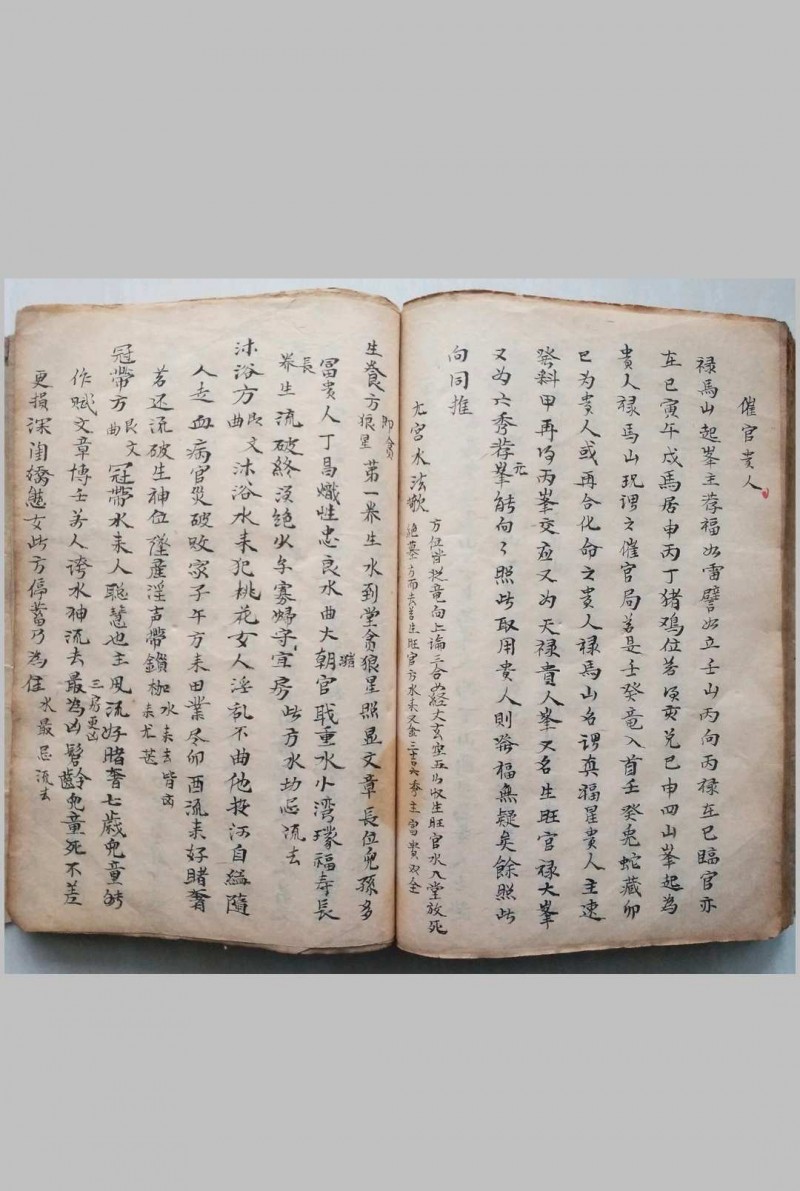 催官贵人
禄馬山起峯主荐福如雷譬如立壬山丙向丙禄在巳臨官亦
在巳寅午戌馬居申丙丁猪鸡位若巽兑巳申四山峯起為
貴人禄馬山现谓之催官局若是壬癸竜入首壬癸兔蛇藏卯
巳为貴人或再合化命之貴人禄馬山名谓真福星貴人主速
發科甲再得丙峯交应又为天禄貴人峯又名生旺官禄大峯
又为六秀荐元峯能向々照此取用貴人則發福無疑矣餘照此
向同推
九宫水法歌
方位皆從竜向上論三合 玄空五行收生旺官水入堂放死
絶墓方而去若生旺官方水来又合三吉六秀主富貴双全
生養方 即貪狼星 第一养生水到堂贪狼星照显文章長位兒孫多
富貴人丁昌熾性忠良水曲大朝官职重水小湾環福寿長
养生流破終没絶少年寡婦守宜房此方水切忌流去
沐浴方 文曲 沐浴水来犯桃花女人淫乱不由他投河自縊隨
人走血病官灾破败家子午方来田業尽卯酉流来好賭奢
若还流破生神位墮産淫声帶鎖枷 水来去皆凶来尤甚
冠帶方 文曲 冠帶水来人聪慧也主风流好賭奢七歳兒童能
作赋文章博士万人誇水神流去最為凶髫齡兒童死不差
更損深闺嬌態女此方停蓄乃为佳 水最忌流去